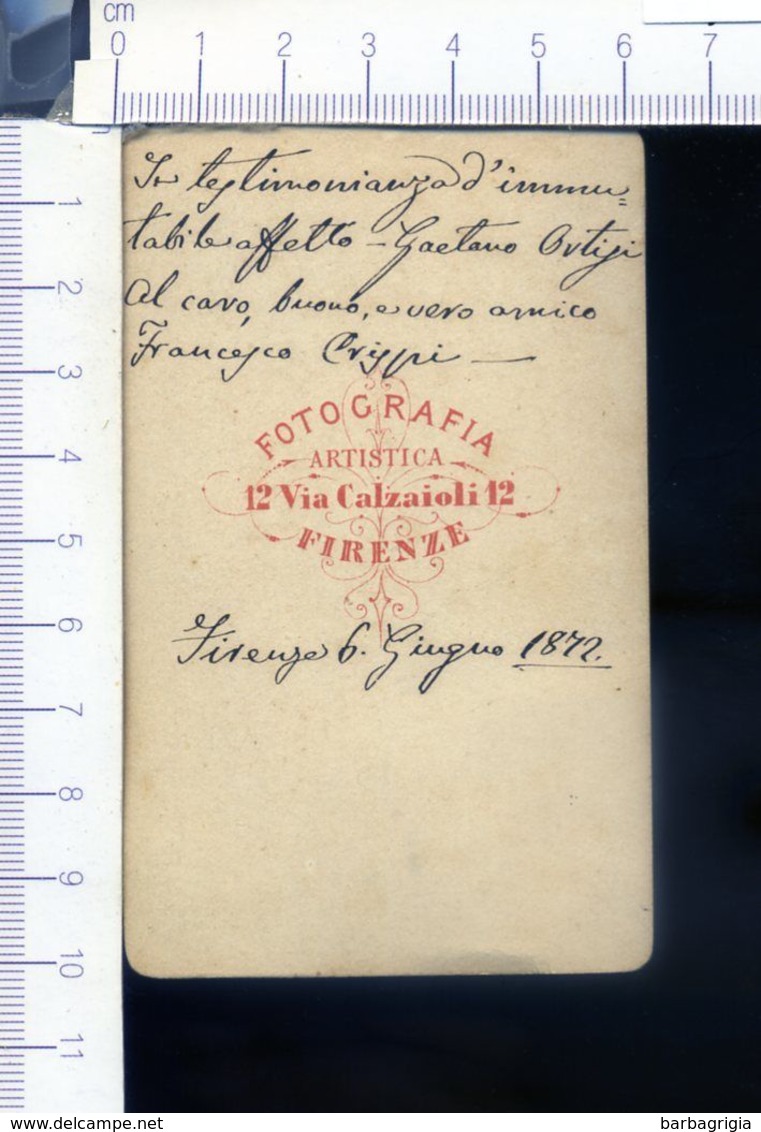 cm
0 1 2 3 4 5 6 7
In testimonianza d'immu=
tabile affetto – Gaetano Ortisi
Al caro, buono, e vero amico
Francesco Crispi —
FOTOGRAFIA
ARTISTICA
12 Via Calzaioli 12
FIRENZE
Firenze 6. Giugno 1872.
1
2
3
4
5
6
7
8
9
10
11
delcampe.net
barbagrigia